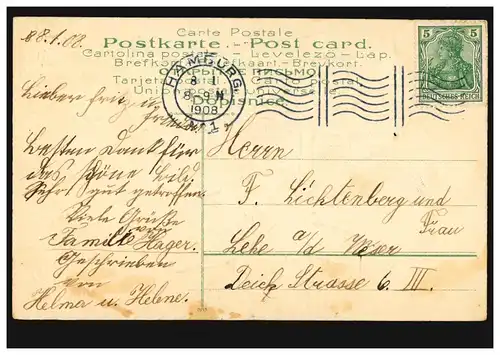 88.1.08.
Carte Postale
Postkarte. - Post card.
Cartolina postale - Levelező - Lap.
Brefkort - Briefkaart - Brevkort.
ОТКРЫТОЕ ПИСЬМО
Tarjeta Postal
Dopisnice.
HAMBURG.
8 1
8-9 N
1908
1
5 5
DEUTSCHES REICH
Lieber Fritz
Besten Dank für
das schöne Bild.
Sehr gut getroffen.
Viele Grüße
von
Familie Hager.
Geschrieben
von
Helma u. Helene.
Herrn
F. Lichtenberg und
Frau
Lehe a/d Weser
Deich Strasse 6. III.